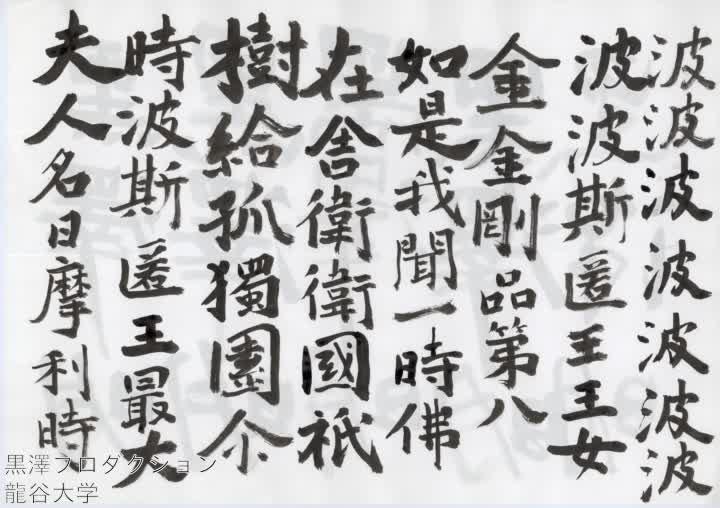 波波波波波波波
波波斯匿王王女
金金剛品第八
如是我聞一時佛
在舎衛衛國祇
樹給孤獨園尒
時波斯匿王最大
夫人名曰摩利時
黒澤プロダクション
龍谷大学